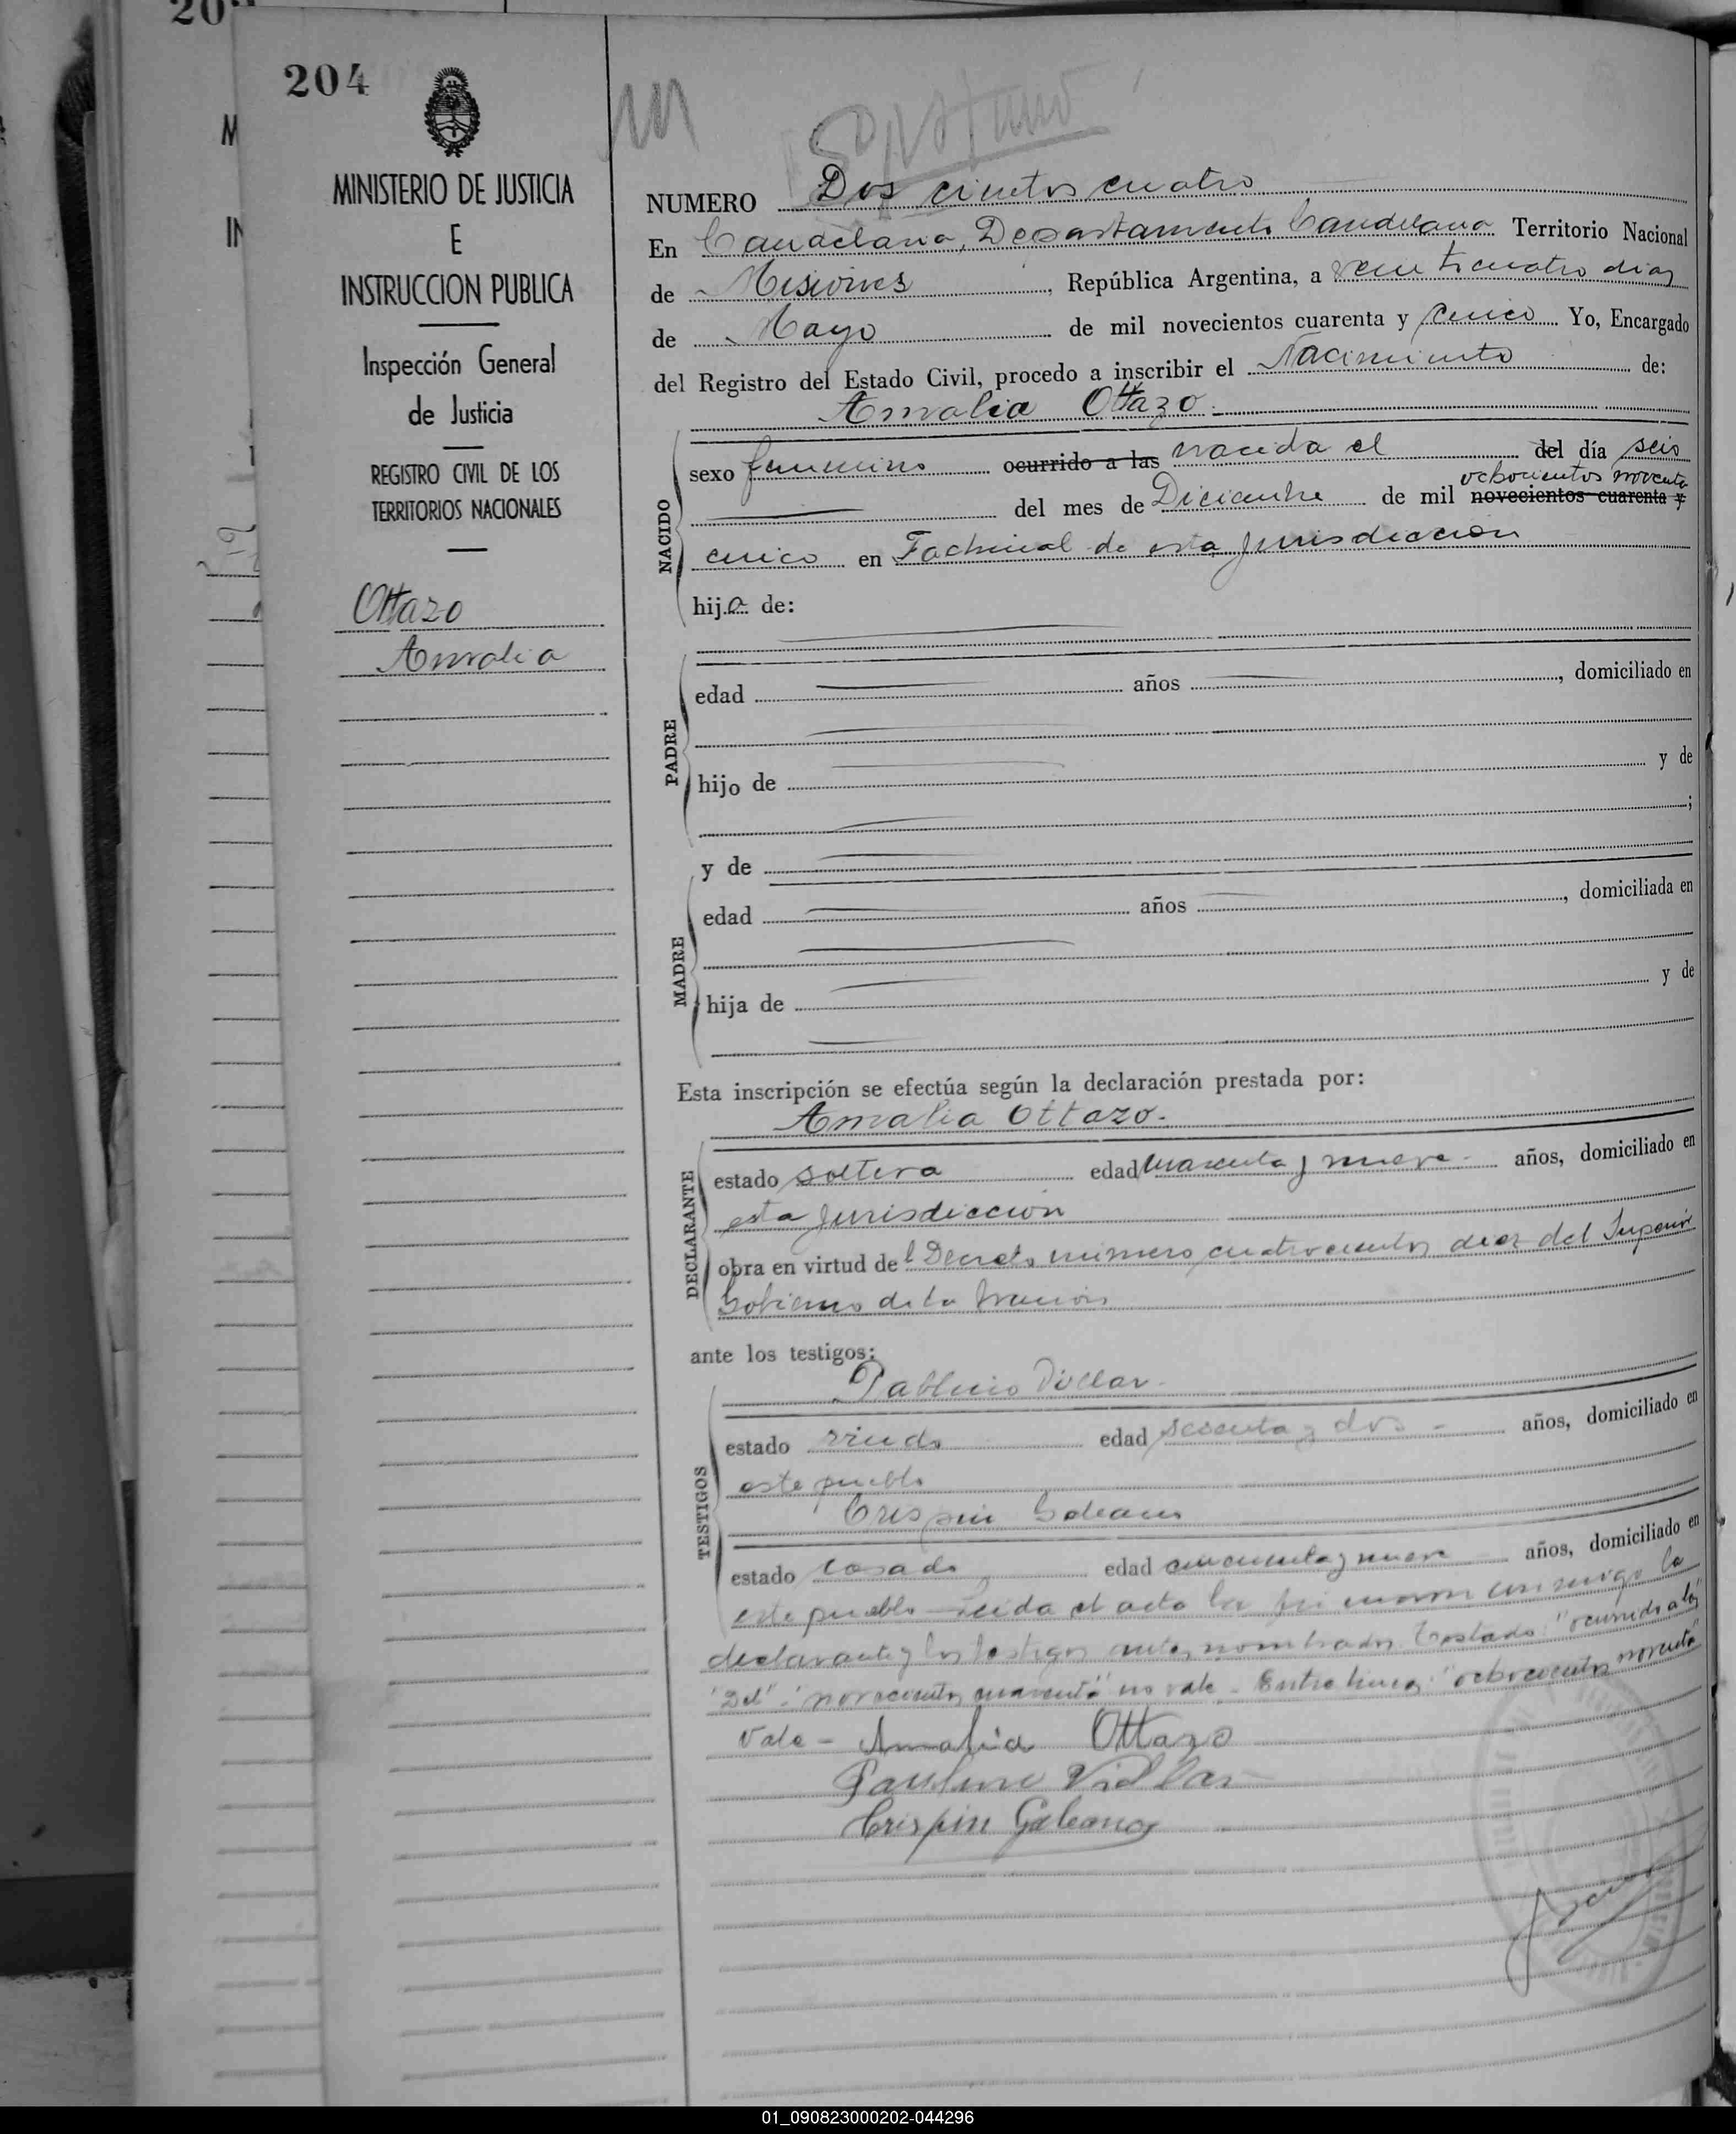 204
MINISTERIO DE JUSTICIA
E
INSTRUCCION PUBLICA
Inspección General
de Justicia
REGISTRO CIVIL DE LOS
TERRITORIOS NACIONALES
Ottazo
Amalia
NUMERO Dos cientos cuatro
En Candelaria, Departamento Candelaria Territorio Nacional
de Misiones, República Argentina, a veinticuatro dias
de Mayo de mil novecientos cuarenta y cinco Yo, Encargado
del Registro del Estado Civil, procedo a inscribir el Nacimiento de:
Amalia Ottazo.
NACIDO
sexo femenino ocurrido a las nacida el del día seis
ochocientos noventa
del mes de Diciembre de mil novecientos cuarenta y
cinco en Fachinal de esta Jurisdiccion
hija de:
PADRE
edad años , domiciliado en
hijo de y de
;
y de
MADRE
edad años , domiciliada en
hija de y de
Esta inscripción se efectúa según la declaración prestada por:
Amalia Ottazo.
DECLARANTE
estado soltera edad cuarenta y nueve - años, domiciliado en
esta Jurisdiccion
obra en virtud del Decreto número cuatrocientos diez del Superior
Gobierno de la Nacion
ante los testigos:
Villar -
TESTIGOS
estado viudo edad sesenta y dos - años, domiciliado en
este pueblo
Crispin Galeano
estado casado edad cincuenta y nueve años, domiciliado en
este pueblo Leida el acta la firmaron conmigo la
declarante y los testigos antes nombrados. Testado: "ocurrido a las"
"Del": "novecientos cuarenta" no vale - Entre lineas: "ochocientos noventa"
Vale - Amalia Ottazo
Villar
Crispin Galeano
01_090823000202-044296